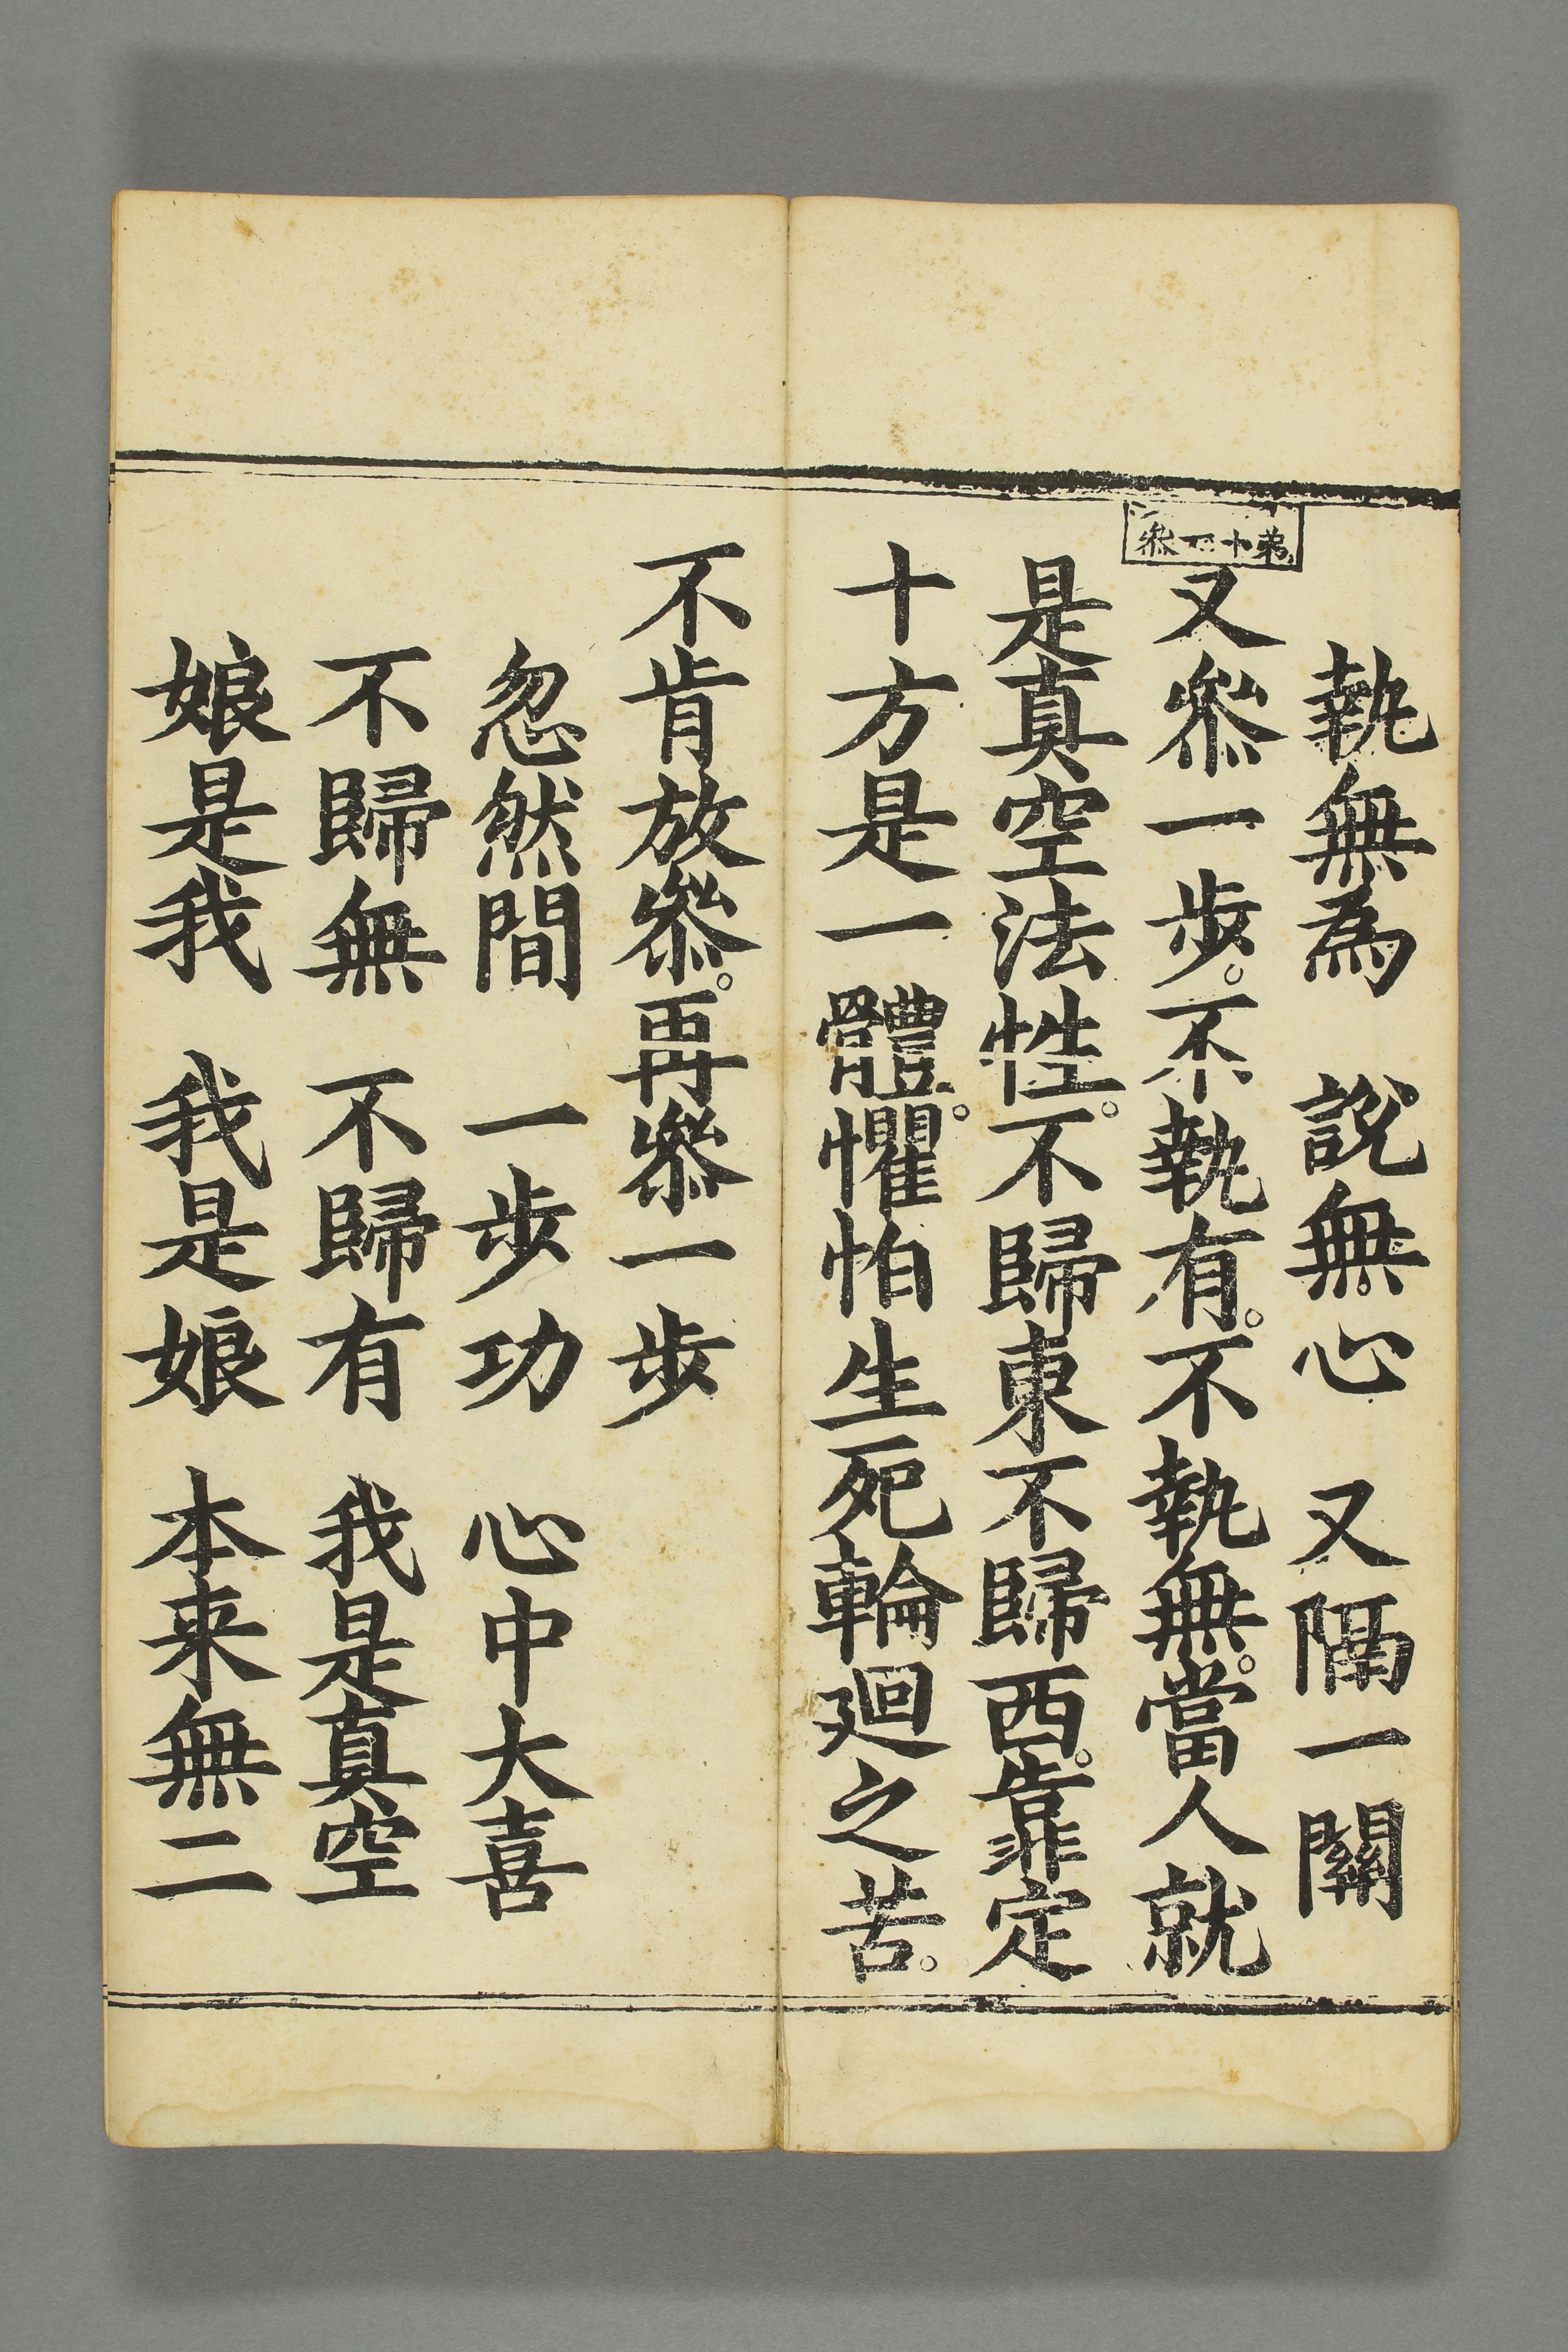 執無為　說無心　又隔一關
弟十一叅
又叅一步。不執有。不執無。當人就
是真空法性。不歸東不歸西。靠定
十方是一體。懼怕生死輪廻之苦。
不肯放叅。再叅一步
忽然間　一步功　心中大喜
不歸無　不歸有　我是真空
娘是我　我是娘　本来無二